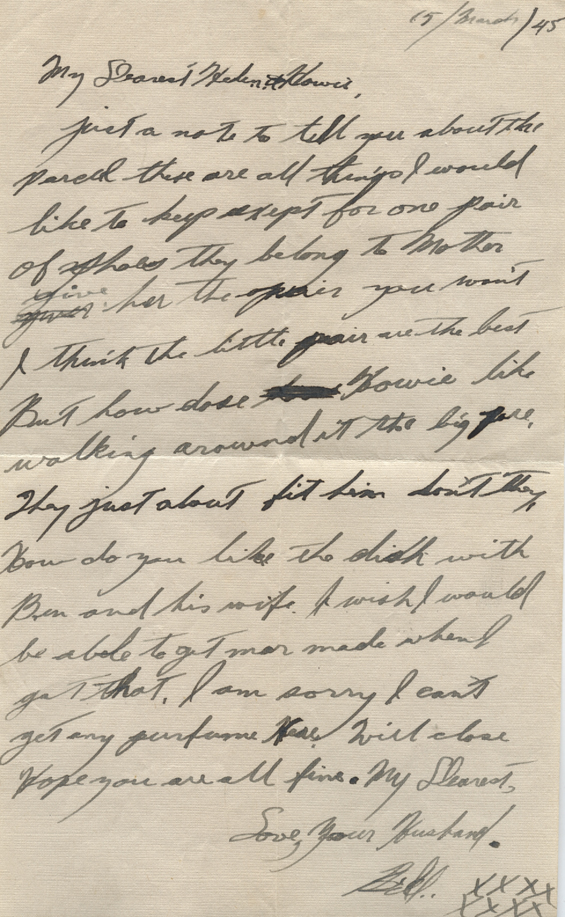 15/March/45
My Dearest Helen & Howie,
just a note to tell you about the
parcel these are all things I would
like to keep exept for one pair
of shoes they belong to Mother
give her the pair you won't
I think the little pair are the best
But how dose Howie like
walking around it the big
They just about fit him don't they,
How do you like the dish with
Ben and his wife. I wish I would
be able to get mor made when I
got that. I am sorry I can't
get any purfume Here. Will close
Hope you are all fine. My Dearest,
Love, Your Husband.
Bill. XXXX
XXXX